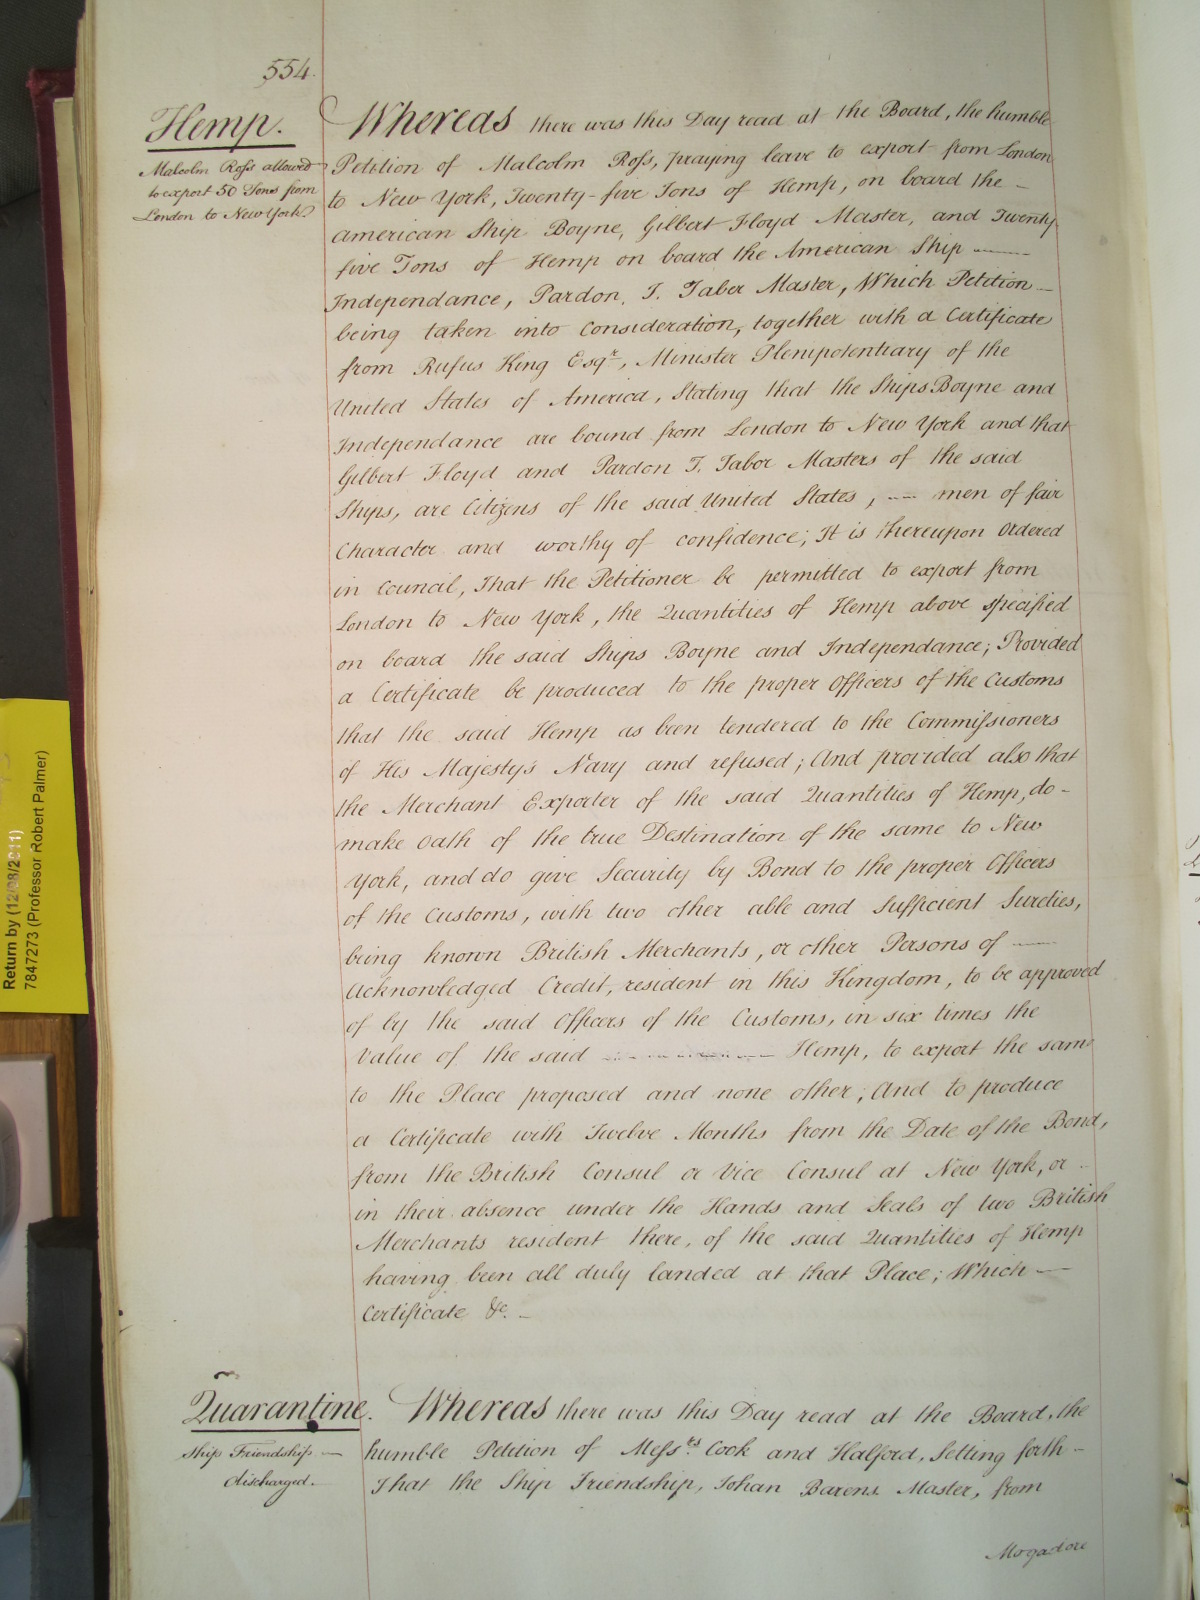 554.
Hemp.
Malcolm Ross allowed
to export 50 Tons from
London to New York
Whereas there was this Day read at the Board, the humble
Petition of Malcolm Ross, praying leave to export from London
to New York, Twenty-five Tons of Hemp, on board the -
American Ship Boyne, Gilbert Floyd Master, and Twenty
five Tons of Hemp on board the American Ship —
Independance, Pardon. T. Taber Master, Which Petition —
being taken into consideration, together with a Certificate
from Rufus King Esqr., Minister Plenipotentiary of the
United States of America, Stating that the Ships Boyne and
Independance are bound from London to New York and that
Gilbert Floyd and Pardon T. Tabor Masters of the said
Ships, are Citizens of the said United States, — men of fair
Character and worthy of confidence; It is thereupon Ordered
in Council, That the Petitioner be permitted to export from
London to New York, the Quantities of Hemp above specified
on board the said Ships Boyne and Independance; Provided
a Certificate be produced to the proper Officers of the Customs
that the said Hemp as been tendered to the Commissioners
of His Majesty's Navy and refused; And provided also that
the Merchant Exporter of the said Quantities of Hemp, do -
make Oath of the true Destination of the same to New
York, and do give Security by Bond to the proper Officers
of the Customs, with two other able and Sufficient Sureties,
being known British Merchants, or other Persons of —
Acknowledged Credit, resident in this Kingdom, to be approved
of by the said Officers of the Customs, in six times the
value of the said — Hemp, to export the same
to the Place proposed and none other; And to produce
a Certificate with Twelve Months from the Date of the Bond,
from the British Consul or Vice Consul at New York, or -
in their absence under the Hands and Seals of two British
Merchants resident there, of the said Quantities of Hemp
having been all duly landed at that Place; Which —
Certificate &c. -
Quarantine.
Ship Friendship —
discharged.
Whereas there was this Day read at the Board, the
humble Petition of Messrs. Cook and Halford, Setting forth -
That the Ship Friendship, Johan Barens Master, from
Mogadore
Return by (12/08/2011)
7847273 (Professor Robert Palmer)